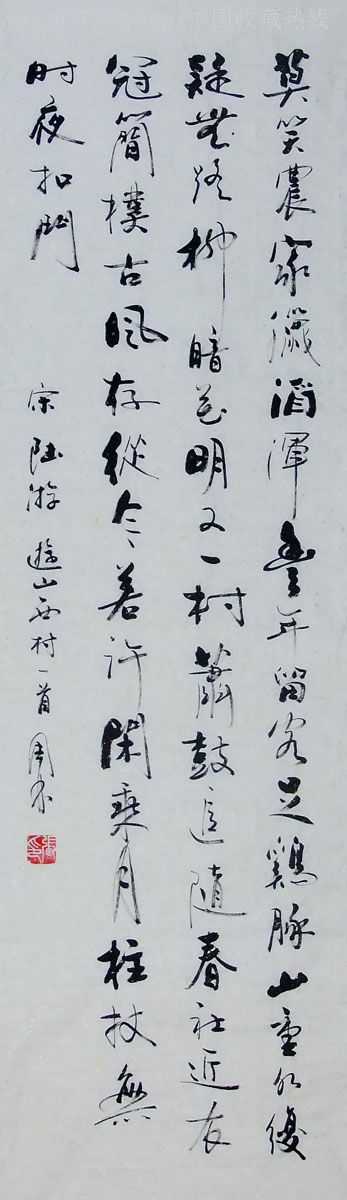 中国收藏热线
莫笑農家臘酒渾豐年留客足鷄豚山重水複
疑無路柳暗花明又一村簫鼓追隨春社近衣
冠簡樸古風存從今若許閑乘月拄杖無
时夜扣門
宋陆游遊山西村一首